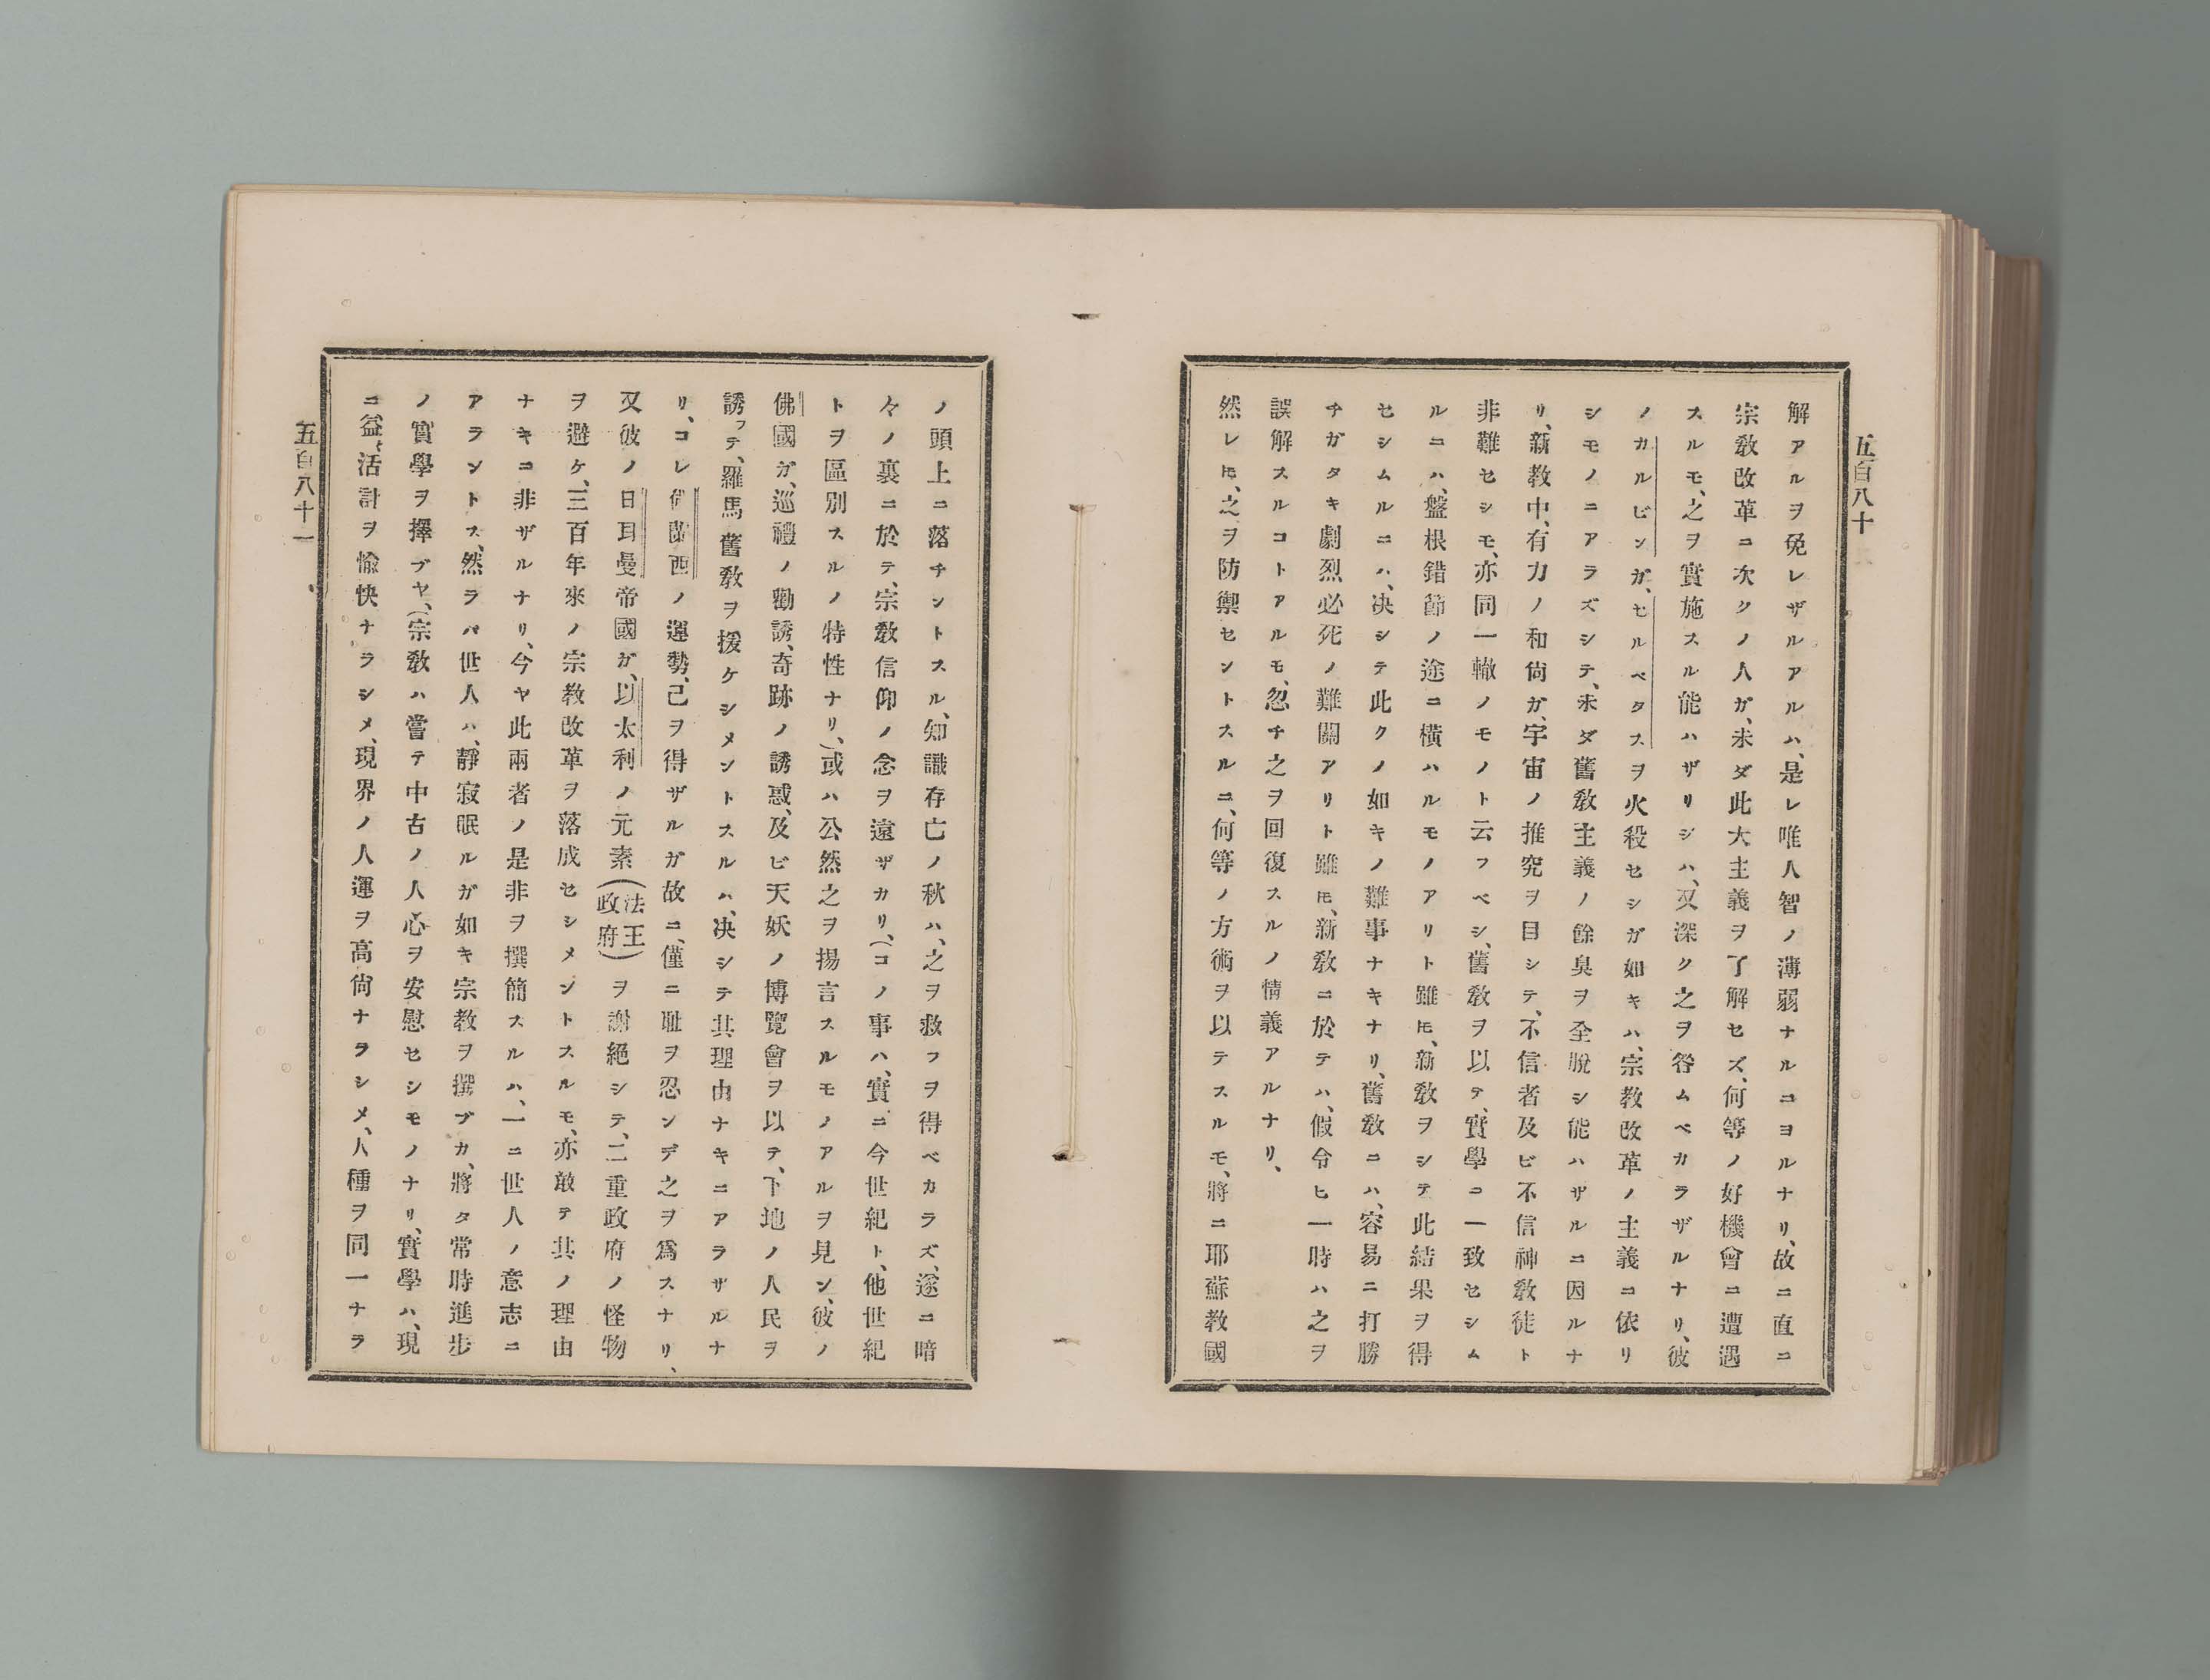 五百八十
解アルヲ免レザルアルハ、是レ唯人智ノ薄弱ナルニヨルナリ、故ニ直ニ
宗敎改革ニ次クノ人ガ、未ダ此大主義ヲ了解セズ、何等ノ好機會ニ遭遇
スルモ、之ヲ實施スル能ハザリシハ、又深ク之ヲ咎ムベカラザルナリ、彼
ノカルビンガ、セルベタスヲ火殺セシガ如キハ、宗教改革ノ主義ニ依リ
シモノニアラズシテ、未ダ舊敎主義ノ餘臭ヲ全脫シ能ハザルニ因ルナ
リ、新教中、有力ノ和尙ガ、宇宙ノ推究ヲ目シテ、不信者及ビ不信神敎徒ト
非難セシモ、亦同一轍ノモノト云フベシ、舊敎ヲ以テ、實學ニ一致セシム
ルニハ、盤根錯節ノ途ニ橫ハルモノアリト雖𪜈、新敎ヲシテ此結果ヲ得
セシムルニハ、决シテ此クノ如キノ難事ナキナリ、舊敎ニハ、容易ニ打勝
チガタキ劇烈必死ノ難關アリト雖𪜈、新敎ニ於テハ、假令ヒ一時ハ之ヲ
誤解スルコトアルモ、忽チ之ヲ回復スルノ情義アルナリ、
然レ𪜈、之ヲ防禦セントスルニ、何等ノ方術ヲ以テスルモ、將ニ耶蘇教國
ノ頭上ニ落チントスル、知識存亡ノ秋ハ、之ヲ救フヲ得ベカラズ、遂ニ暗
々ノ裏ニ於テ、宗敎信仰ノ念ヲ遠ザカリ、（コノ事ハ、實ニ今世紀ト、他世紀
トヲ區別スルノ特性ナリ、）或ハ公然之ヲ揚言スルモノアルヲ見ン、彼ノ
佛國ガ、巡禮ノ勸誘、奇跡ノ誘惑、及ビ天妖ノ博覽會ヲ以テ、下地ノ人民ヲ
誘フテ、羅馬舊敎ヲ援ケシメントスルハ、决シテ其理由ナキニアラザルナ
リ、コレ佛蘭西ノ運勢、己ヲ得ザルガ故ニ、僅ニ耻ヲ忍ンデ之ヲ爲スナリ、
又彼ノ日耳曼帝國ガ、以太利ノ元素（法王政府）ヲ謝絕シテ、二重政府ノ怪物
ヲ避ケ、三百年來ノ宗敎改革ヲ落成セシメントスルモ、亦敢テ其ノ理由
ナキニ非ザルナリ、今ヤ此兩者ノ是非ヲ撰簡スルハ、一ニ世人ノ意志ニ
アラントス、然ラバ世人ハ、靜寂眠ルガ如キ宗教ヲ撰ブカ、將タ常時進步
ノ實學ヲ擇ブヤ、（宗敎ハ嘗テ中古ノ人心ヲ安慰セシモノナリ、實學ハ、現
ニ益〻活計ヲ愉快ナラシメ、現界ノ人運ヲ高尙ナラシメ、人種ヲ同一ナラ
五百八十一